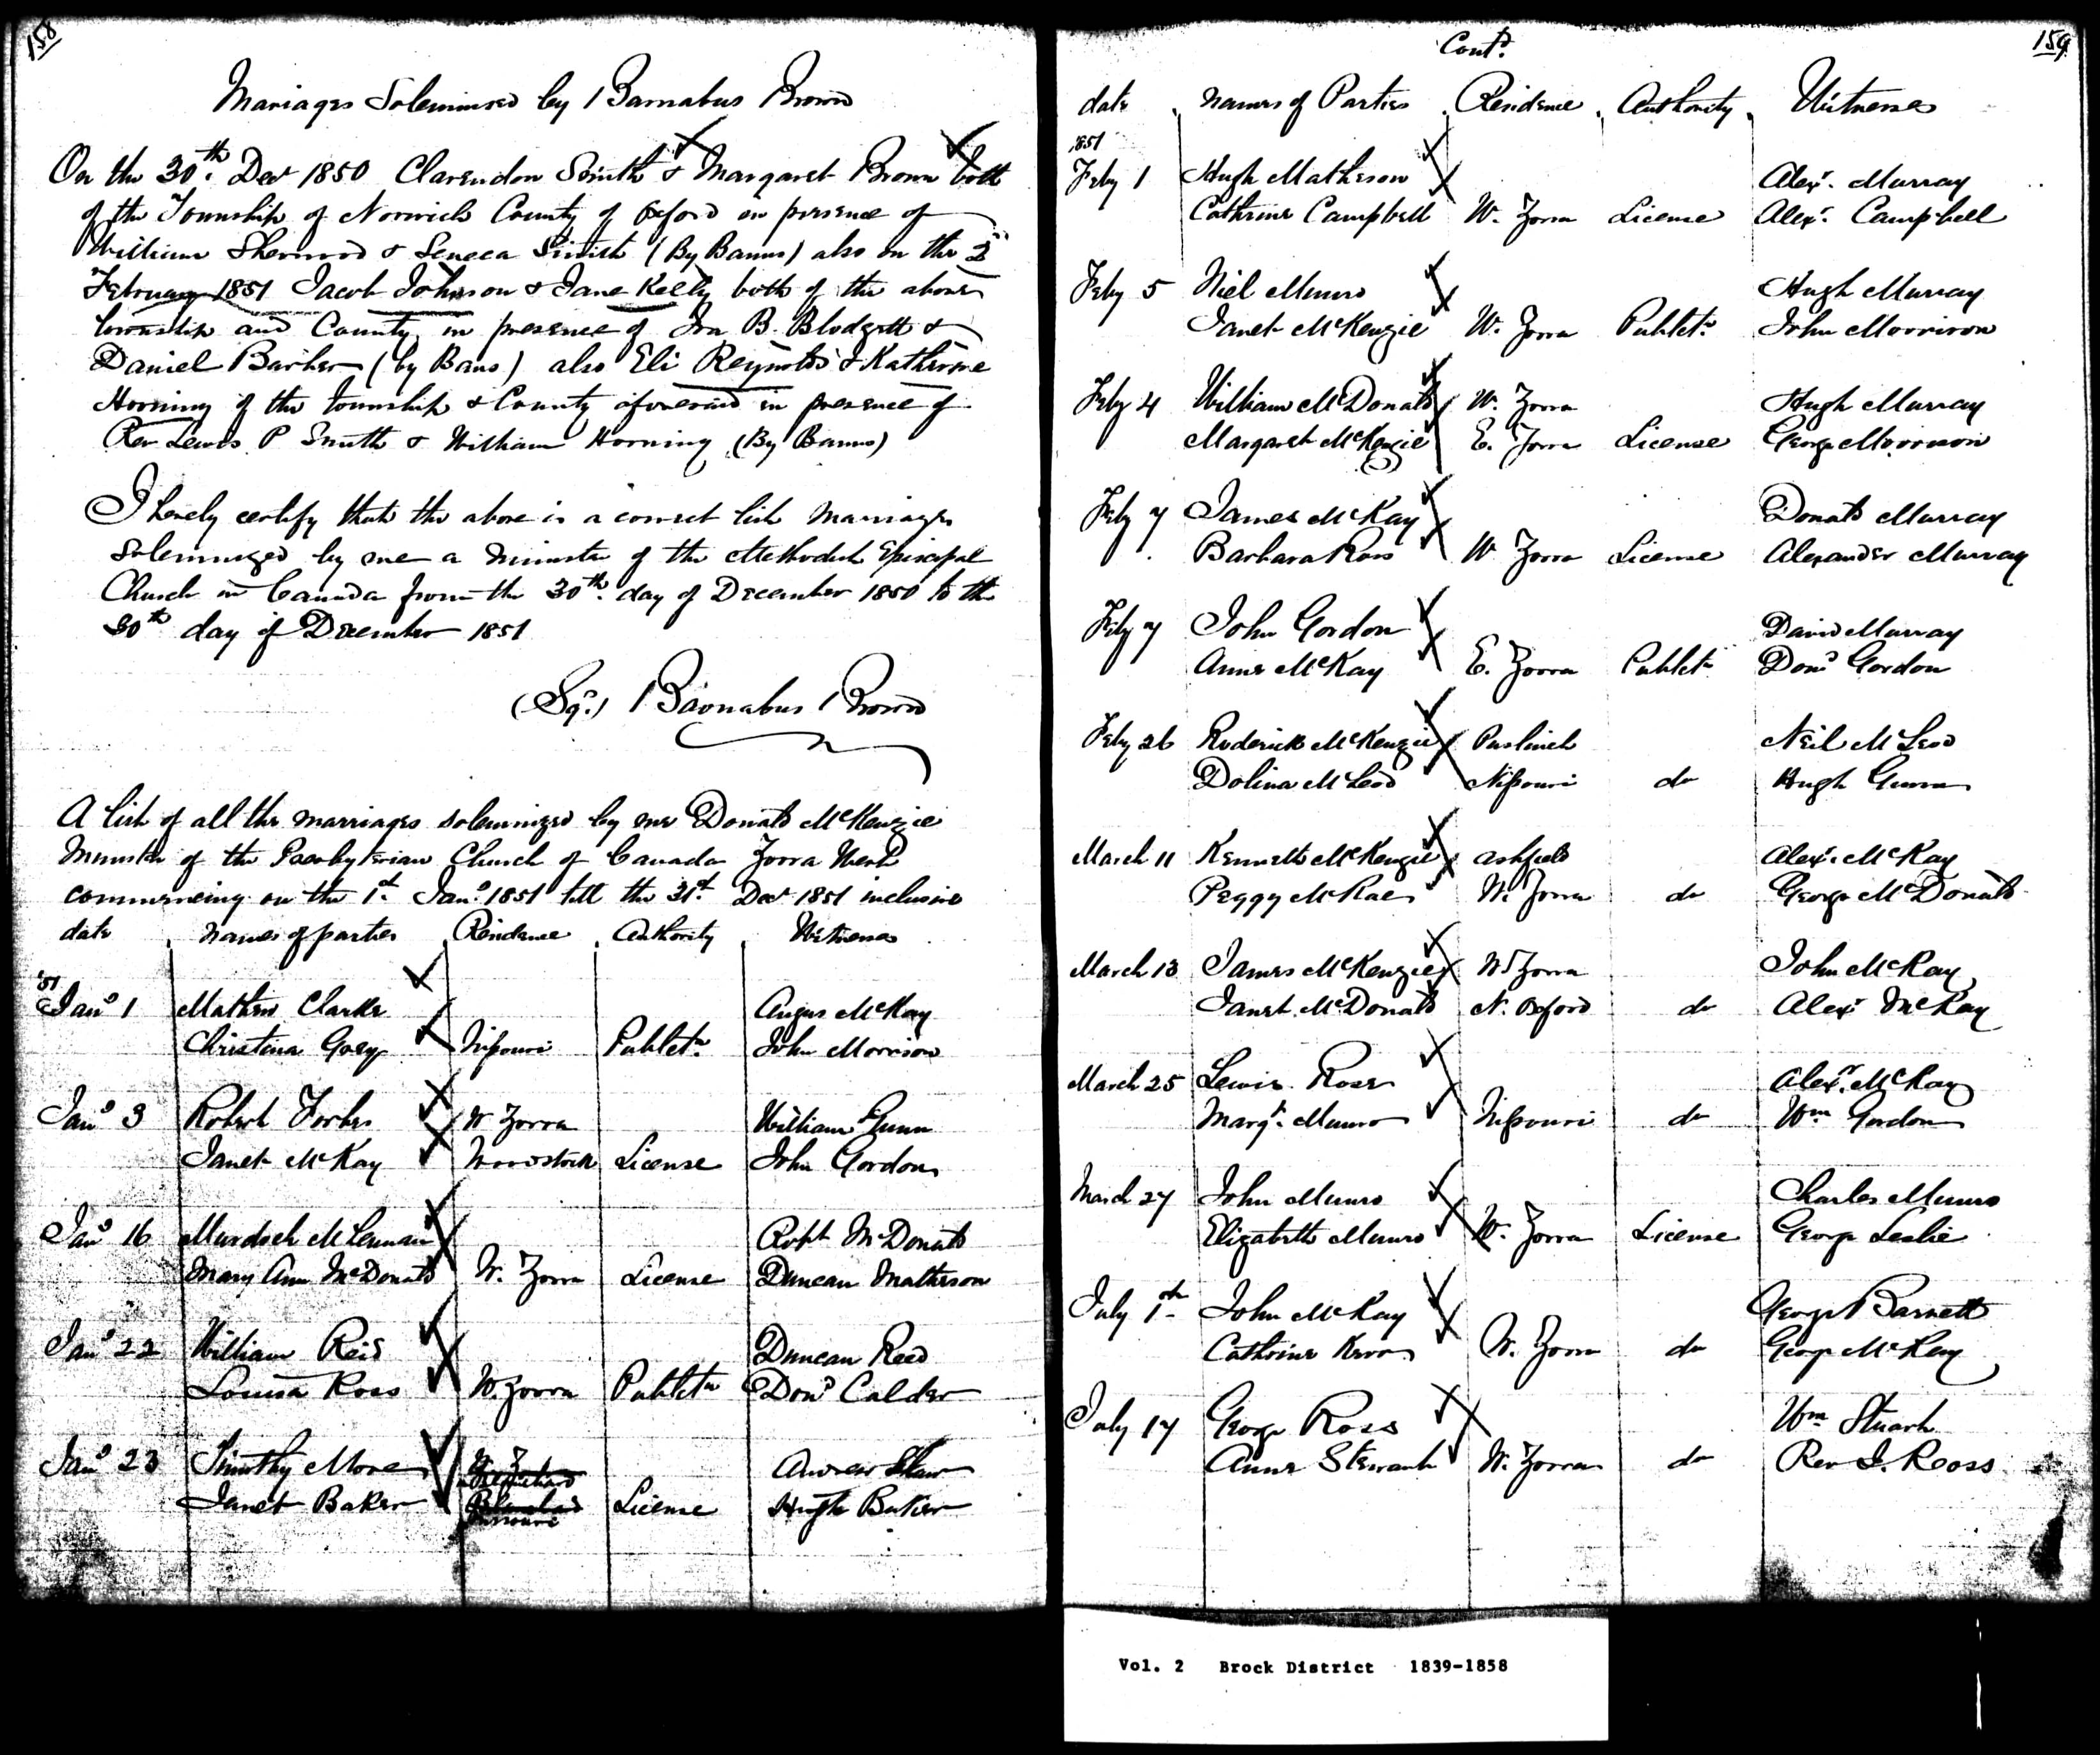 158
Mariages Solemnised by Barnabus Brown
On the 30th Decr 1850 Clarendon Smith & Margaret Brown both
of the Township of Norwich County of Oxford in presence of
William Sherwood & Seneca Smith (By Banns) also on the 2d
February 1851 Jacob Johnson & Jane Kelly both of the above
township and County in presence of Ira B. Blodgett &
Daniel Barker (by Bans) also Eli Reynolds & Katherine
Horning of the township & County aforesaid in presence of
Rev Lewis P Smith & William Horning (By Banns)
I hereby certify that the above is a correct list Marriages
Solemnized by me a Minister of the Methodist Episcopal
Church in Canada from the 30th day of December 1850 to the
30th day of December 1851
(Sgd) Barnabus Brown
A list of all the marriages solemnized by me Donald McKenzie
Minister of the Presbyterian Church of Canada Zorra West
commencing on the 1st Jany 1851 till the 31st Decr 1851 inclusive
date names of parties Residence Authority Witnesses
'51
Jany 1 Mathew Clarke Angus McKay
Christina Grey Nissouri Publctn John Morrison
Jany 3 Robert Forbes W Zorra William Gunn
Janet McKay Woodstock License John Gordon
Jany 16 Murdoch McLennan Robt McDonald
Mary Ann McDonald W. Zorra License Duncan Matheson
Jany 22 William Reid Duncan Reed
Louisa Ross W. Zorra Publctn Dond Calder
Jany 23 Timothy More Andrew Shaw
Janet Baker License Hugh Baker
159
Contd
date names of Parties Residence Authority Witnesses
1851
Feby 1 Hugh Matheson Alexr. Murray
Cathrine Campbell W. Zorra License Alexr. Campbell
Feby 5 Niel Munro Hugh Murray
Janet McKenzie W. Zorra Publctn John Morrison
Feby 4 William McDonald W. Zorra Hugh Murray
Margaret McKenzie E. Zorra License George Morrison
Feby 7 James McKay Donald Murray
Barbara Ross W Zorra License Alexander Murray
Feby 7 John Gordon David Murray
Anne McKay E. Zorra Publctn Dond Gordon
Feby 26 Roderick McKenzie Puslinch Neil McLeod
Dolina McLeod Nissouri do Hugh Gunn
March 11 Kenneth McKenzie Ashfield Alexr. McKay
Peggy McRae W. Zorra do George McDonald
March 13 James McKenzie W Zorra John McKay
Janet McDonald N. Oxford do Alexr McKay
March 25 Lewis Ross Alexr. McKay
Margt. Munro Nissouri do Wm Gordon
March 27 John Munro Charles Munro
Elizabeth Munro W. Zorra License George Leslie
July 1st John McKay George Barnett
Cathrine Kerr W. Zorra do George McKay
July 17 George Ross Wm Stuart
Anne Stewart W. Zorra do Rev J. Ross
Vol. 2 Brock District 1839-1858